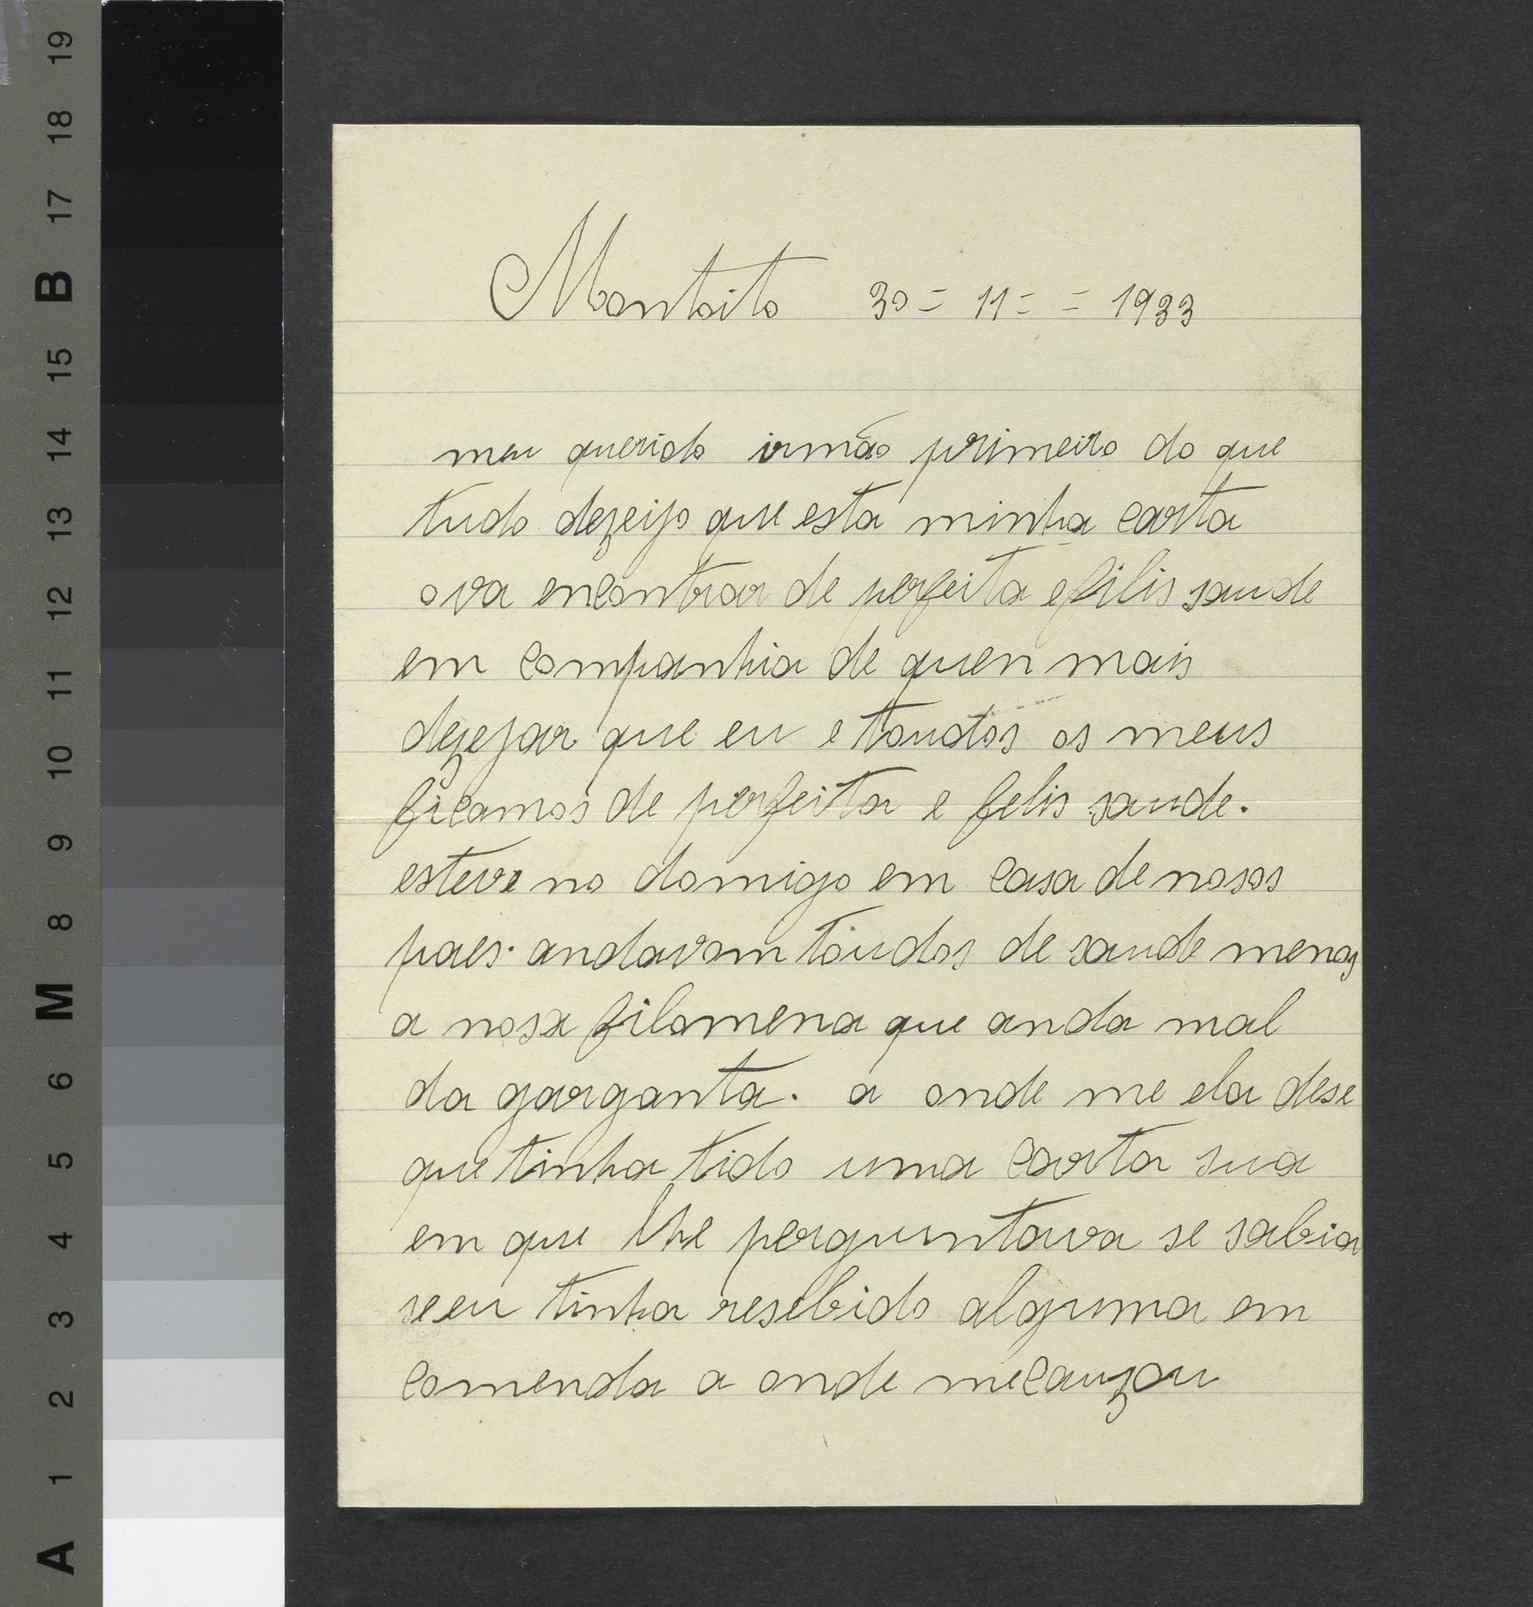 19
18
17
B
15
14
13
12
11
10
9
8
M
6
5
4
3
2
1
A
Montoito 30 = 11 = = 1933
meu querido irmão primeiro do que
tudo dezeijo que esta minha carta
o va encontrar de perfeita e filis saude
em companhia de quen mais
dezejar que eu e toudos os meus
ficamos de perfeita e felis saude.
esteve no domigo em casa de nosos
paes. andavam toudos de saude menos
a nosa filomena que anda mal
da garganta. a onde me ela dese
que tinha tido uma carta sua
em que lhe perguntava se sabia
se eu tinha resebido alguma em
comenda a onde me cauzou